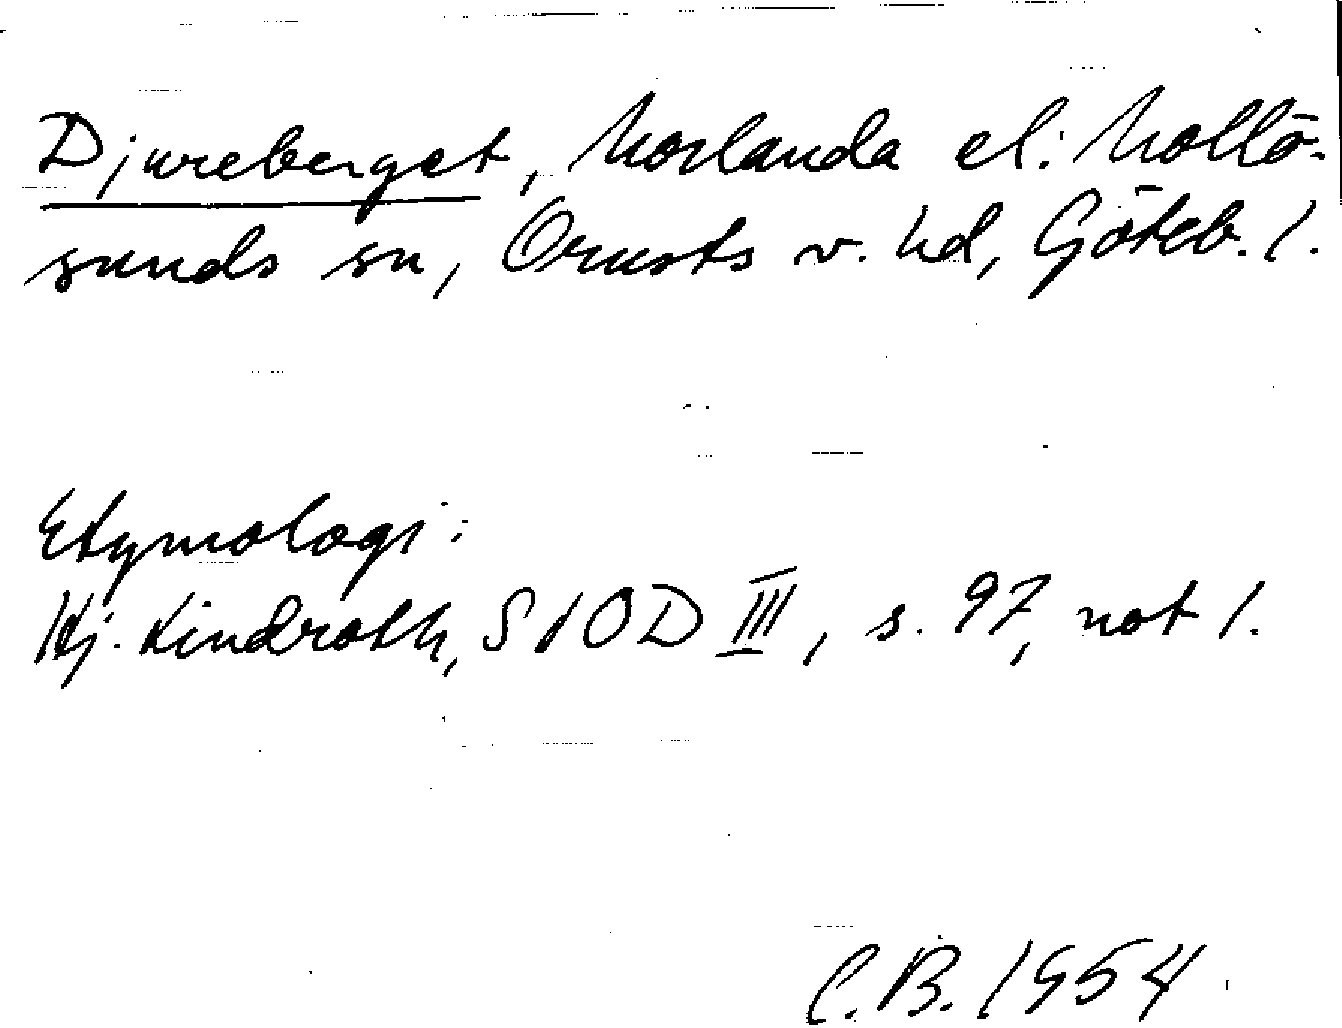 Djureberget, Morlanda el. Mollö-
sunds sn, Orusts v. hd, Göteb. l.
Etymologi:
Hj. Lindroth, SIOD III, s. 97, not 1.
C.B. 1954.